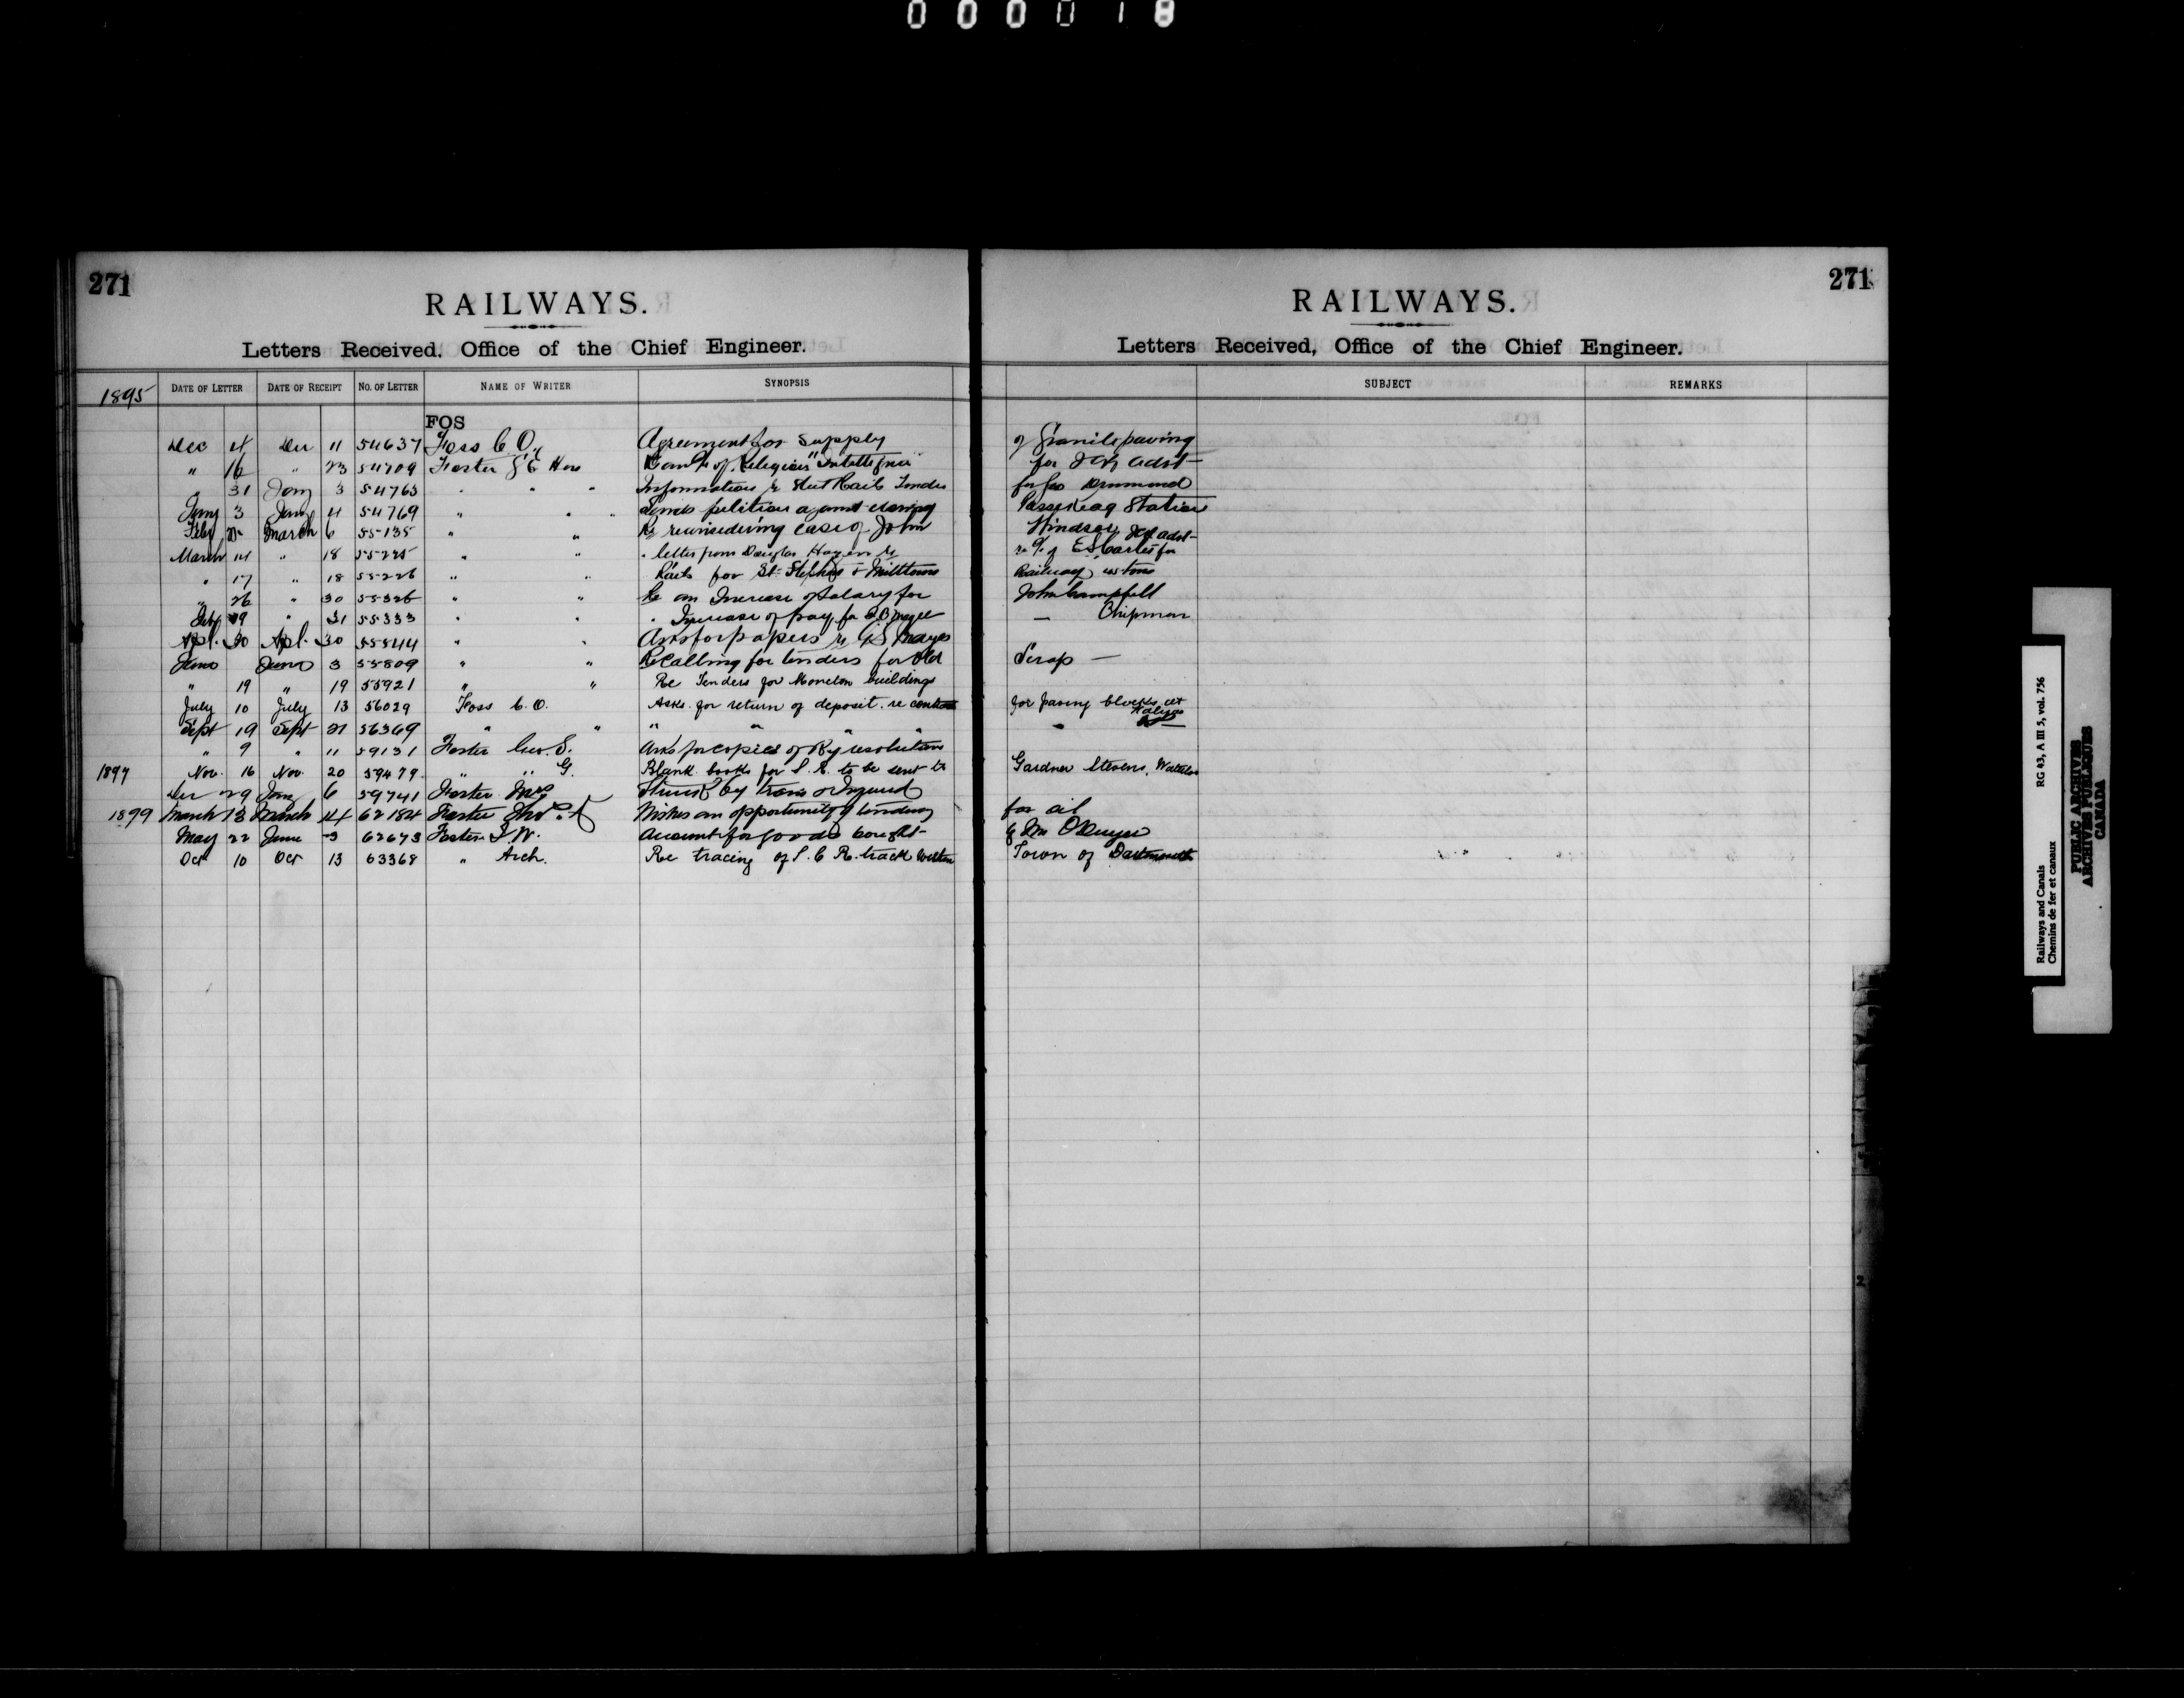 000018
271
RAILWAYS.
Letters Received, Office of the Chief Engineer.
1895 DATE OF LETTER DATE OF RECEIPT NO. OF LETTER NAME OF WRITER SYNOPSIS
FOS
Dec 4 Dec 11 54637 Foss C. O. Agreement for supply
" 16 " 23 54709 Foster G E Hon of Religious "Intelligencer"
" 31 Jany 3 54763 " " " Information re Steel Rail Tender
Jany 3 Jany 4 54769 " " " Sends petition against closing
Feby 25 March 6 55135 " " Re reconsidering case of John
March 14 " 18 55225 " " " letter from Douglas Hazen re
" 17 " 18 55226 " " Rails for St. Stephens & Milltown
" 26 " 30 55326 " " Re an Increase of Salary for
" 31 55333 " " " Increase of pay for
Apl. 30 Apl. 30 55544 " " Asks for papers re G.S. Mayes
June June 3 55809 " " Re calling for tenders for old
" 19 " 19 55921 " " Re Tenders for Moncton buildings
July 10 July 13 56029 Foss C. O. Asks for return of deposit re contract
Sept 19 Sept 21 56369 " " " " "
" 9 " 11 59131 Foster Geo. E. Asks for copies of Ry resolutions
1897 Nov. 16 Nov. 20 59479 " " G. Blank books for S. R. to be sent to
Dec 29 Jany 6 59741 Foster Mrs Struck by train & Injured
1899 March 13 March 14 62184 Foster Thos. A Wishes an opportunity of tendering
May 22 June 3 62673 Foster I. W. Account for goods bought
Oct 10 Oct 13 63368 " Arch. Re tracing of I. C. R. track within
271
RAILWAYS.
Letters Received, Office of the Chief Engineer.
SUBJECT REMARKS
of Granite paving
for ICR advt
for Geo Drummond
Passekeag Station
Windsor
re a/c of for
Railway
John Campbell
— Chipman
Scrap —
for paving blocks at Halifax
Gardner Stevens, Waterloo
for oil
by Wm O'Dwyer
Town of Dartmouth
Railways and Canals RG 43, A III 5, vol. 756
Chemins de fer et canaux
PUBLIC ARCHIVES
ARCHIVES PUBLIQUES
CANADA